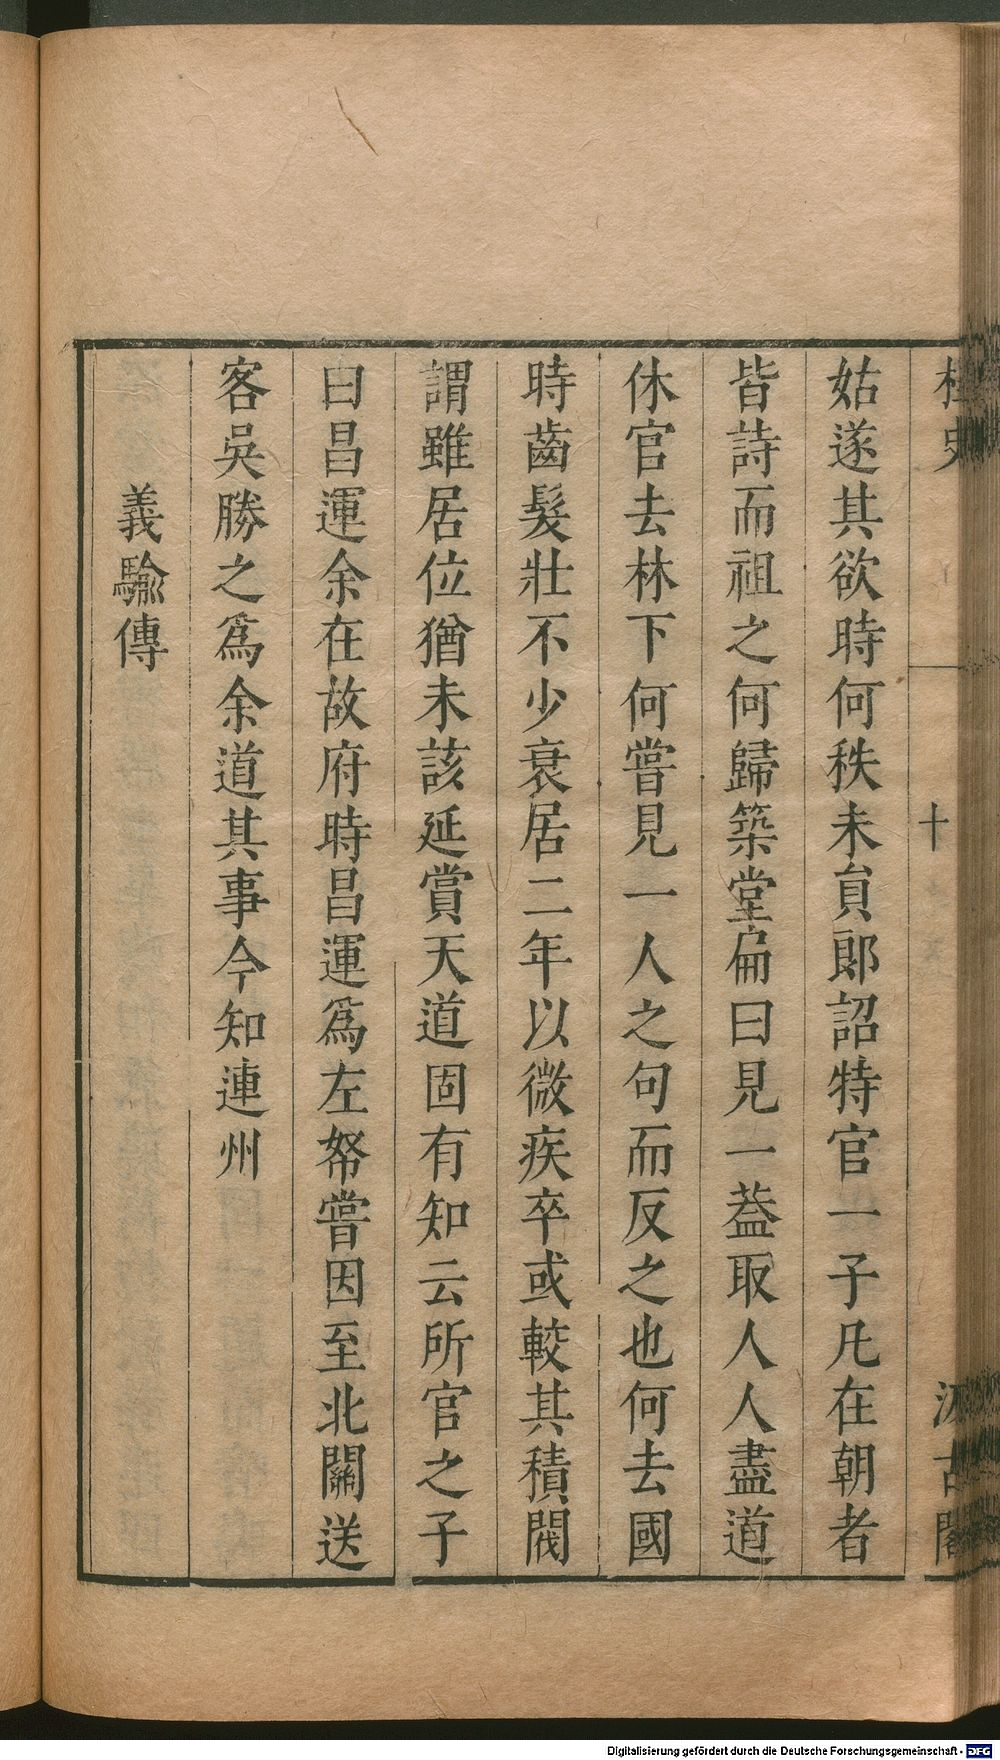 桯史
十
汲古閣
姑遂其欲時何秩未貟郎詔特官一子凡在朝者
皆詩而祖之何歸築堂扁曰見一葢取人人盡道
休官去林下何嘗見一人之句而反之也何去國
時齒髮壯不少衰居二年以微疾卒或較其積閥
謂雖居位猶未該延賞天道固有知云所官之子
曰昌運余在故府時昌運爲左帑嘗因至北關送
客吳勝之爲余道其事今知連州
義騟傳
Digitalisierung gefördert durch die Deutsche Forschungsgemeinschaft - DFG